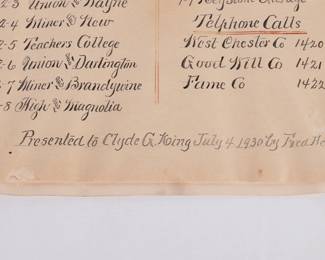 2-3 Union and Wayne
2-4 Miner and New
2-5 Teachers College
2-6 Union and Darlington
2-7 Miner and Brandywine
2-8 High and Magnolia
Telphone Calls
West Chester Co 1420
Good Will Co 1421
Fame Co 1422
Presented to Clyde G. King July 4 1930 by Fred